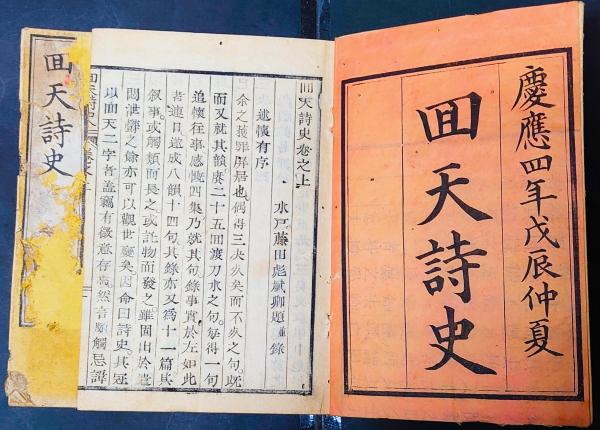 慶應四年戊辰仲夏
囬天詩史
囬天詩史卷之上
述懷有序
水戸藤田彪斌卿題並錄
余之獲罪屏居也偶得三决死矣而不死之句既
而又就其韻賡二十五回渡刀水之句每得一句
追懷往事感慨四集乃就其句錄事實於左如此
者連日遂成八韻十四句其錄亦又為十一篇其
叙事或觸類而長之或託物而發之雖固出於
悶泄鬱之餘亦可以觀世變矣因命曰詩史其冠
以囬天二字者蓋竊有微意存焉然音頗觸忌諱
囬天詩史